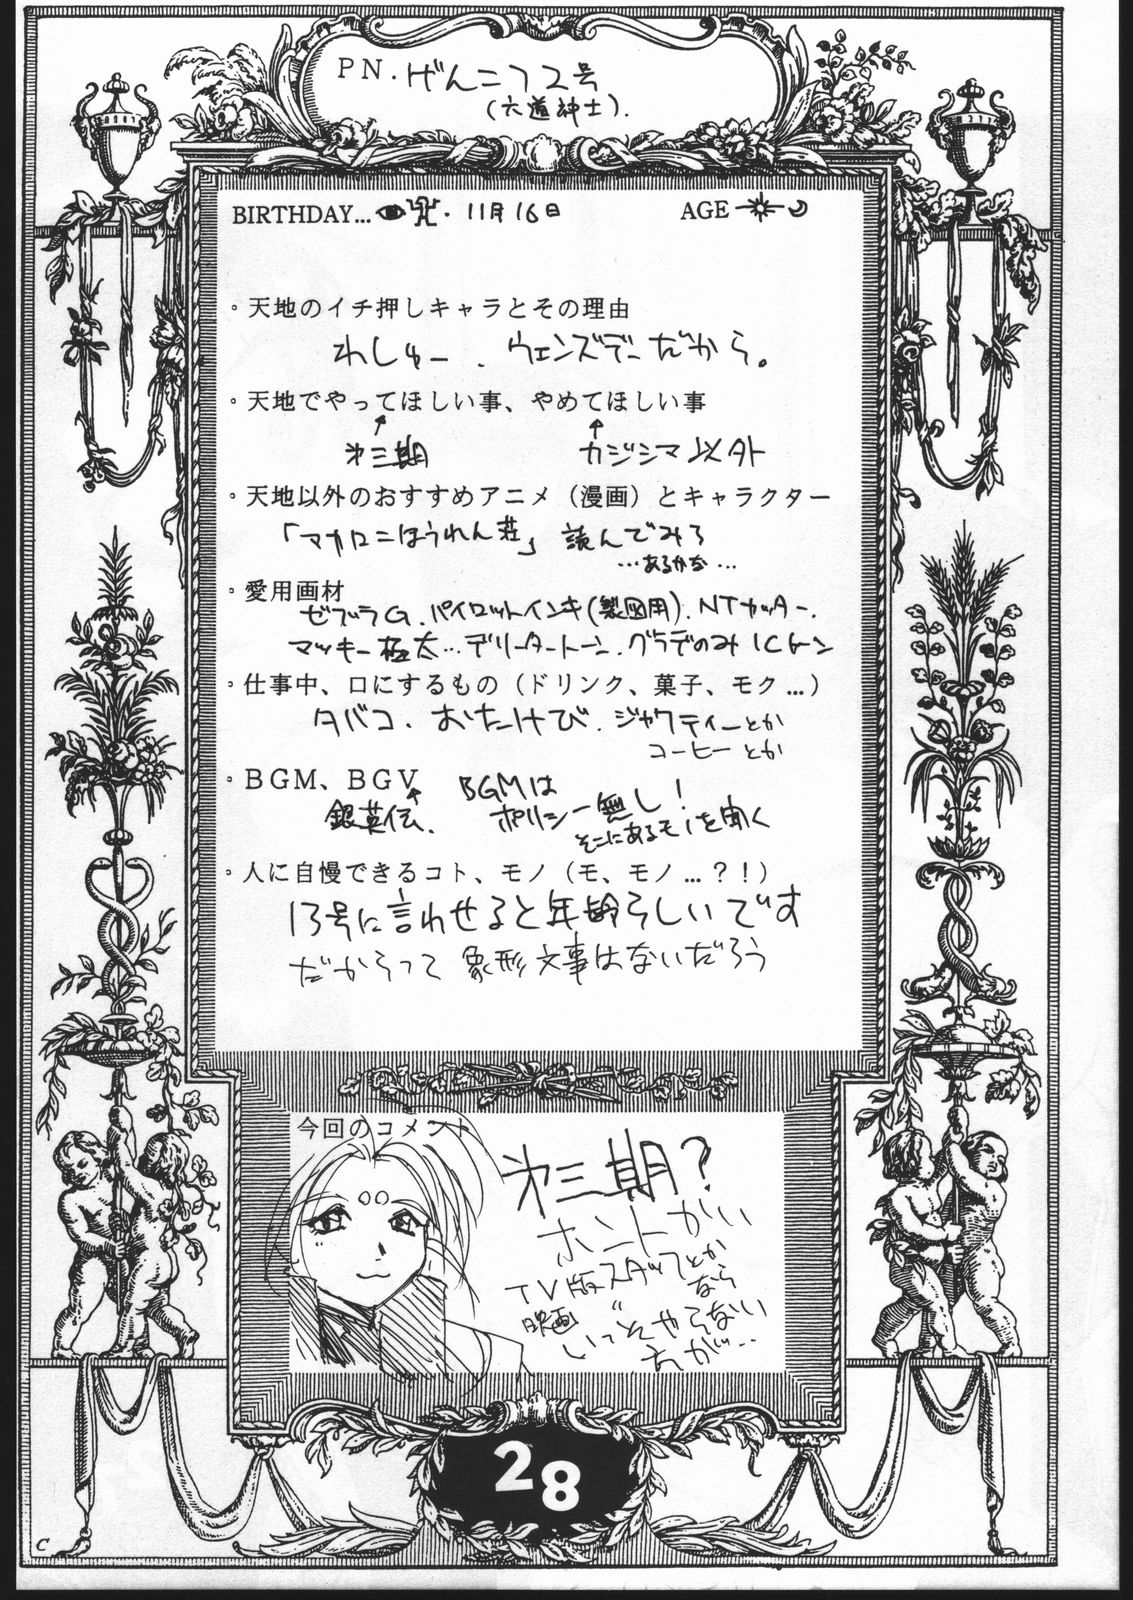 PN.げんこつ2号
(六道紳士).
BIRTHDAY... ・11月16日
AGE
・天地のイチ押しキャラとその理由
わしゅー、ウェンズデーだから。
・天地でやってほしい事、やめてほしい事
才三期 カジシマ以外
・天地以外のおすすめアニメ（漫画）とキャラクター
「マカロニほうれん荘」読んでみろ
…あるかな…
・愛用画材
ゼブラG.パイロットインキ(製図用).NTカッター.
マッキー極太…デリータートーン.グラデのみICトーン
・仕事中、口にするもの（ドリンク、菓子、モク…）
タバコ.おたけび.ジャワティーとか
コーヒーとか
・BGM、BGV
銀英伝. BGMは
ポリシー無し!
そこにあるモノを聞く
・人に自慢できるコト、モノ（モ、モノ…？！）
13号に言わせると年齢らしいです
だからって象形文字はないだろう
今回のコメント
才三期?
ホントかい
TV版スタッフとか
映画なら
いっそやらない
方が…
28
C